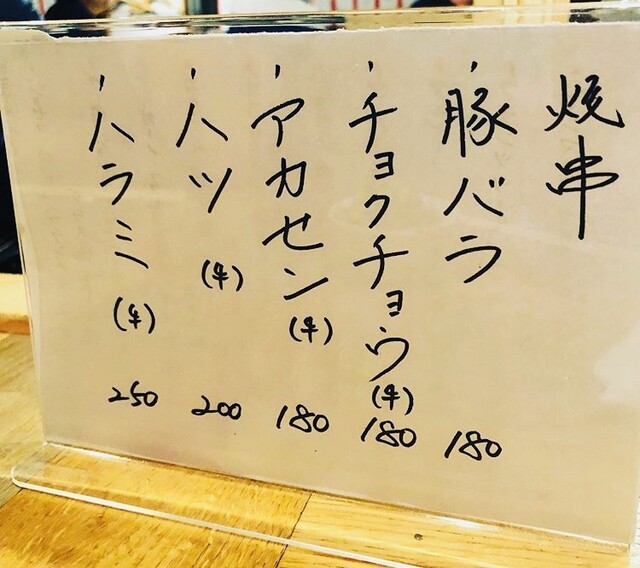 焼串
・豚バラ 180
・チョクチョウ(牛) 180
・アカセン(牛) 180
・ハツ(牛) 200
・ハラミ(牛) 250